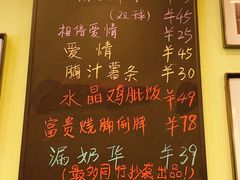 (双球) ¥45
相信爱情 ¥25
爱情 ¥45
腩汁薯条 ¥30
水晶鸡肶饭 ¥49
富贵烧腩例牌 ¥78
漏奶华 ¥39
(最多同行抄袭出品!)